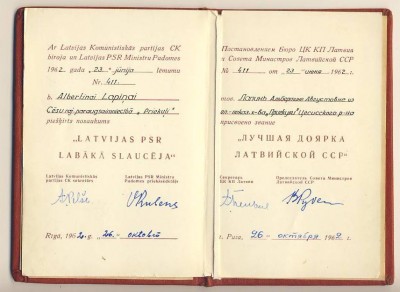 Ar Latvijas Komunistiskās partijas CK
biroja un Latvijas PSR Ministru Padomes
1962. gada „23.“ jūnija lēmumu
Nr. 411.
b. Albertīnai Lapiņai
Cēsu raj. paraugsaimniecībā „Priekuļi“
piešķirts nosaukums
„LATVIJAS PSR
LABĀKĀ SLAUCĒJA“
Latvijas Komunistiskās
partijas CK sekretārs
Latvijas PSR Ministru
Padomes priekšsēdētājs
Rīgā, 1962. g. „26.“ oktobrī
Постановлением Бюро ЦК КП Латвии
и Совета Министров Латвийской ССР
№ 411 от „23“ июня 1962 г.
тов. Лапинь Альбертине Августовне из
„Приекули“ Цесисского р-на
присвоено звание
„ЛУЧШАЯ ДОЯРКА
ЛАТВИЙСКОЙ ССР“
Секретарь
ЦК КП Латвии
Председатель Совета Министров
Латвийской ССР
г. Рига, „26“ октября 1962 г.